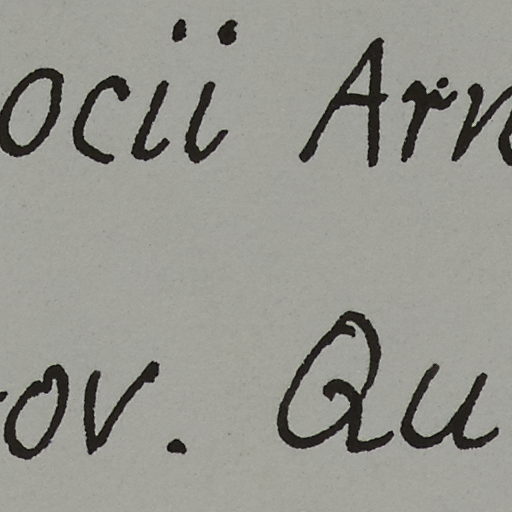 ocii Arn
ov. Qu